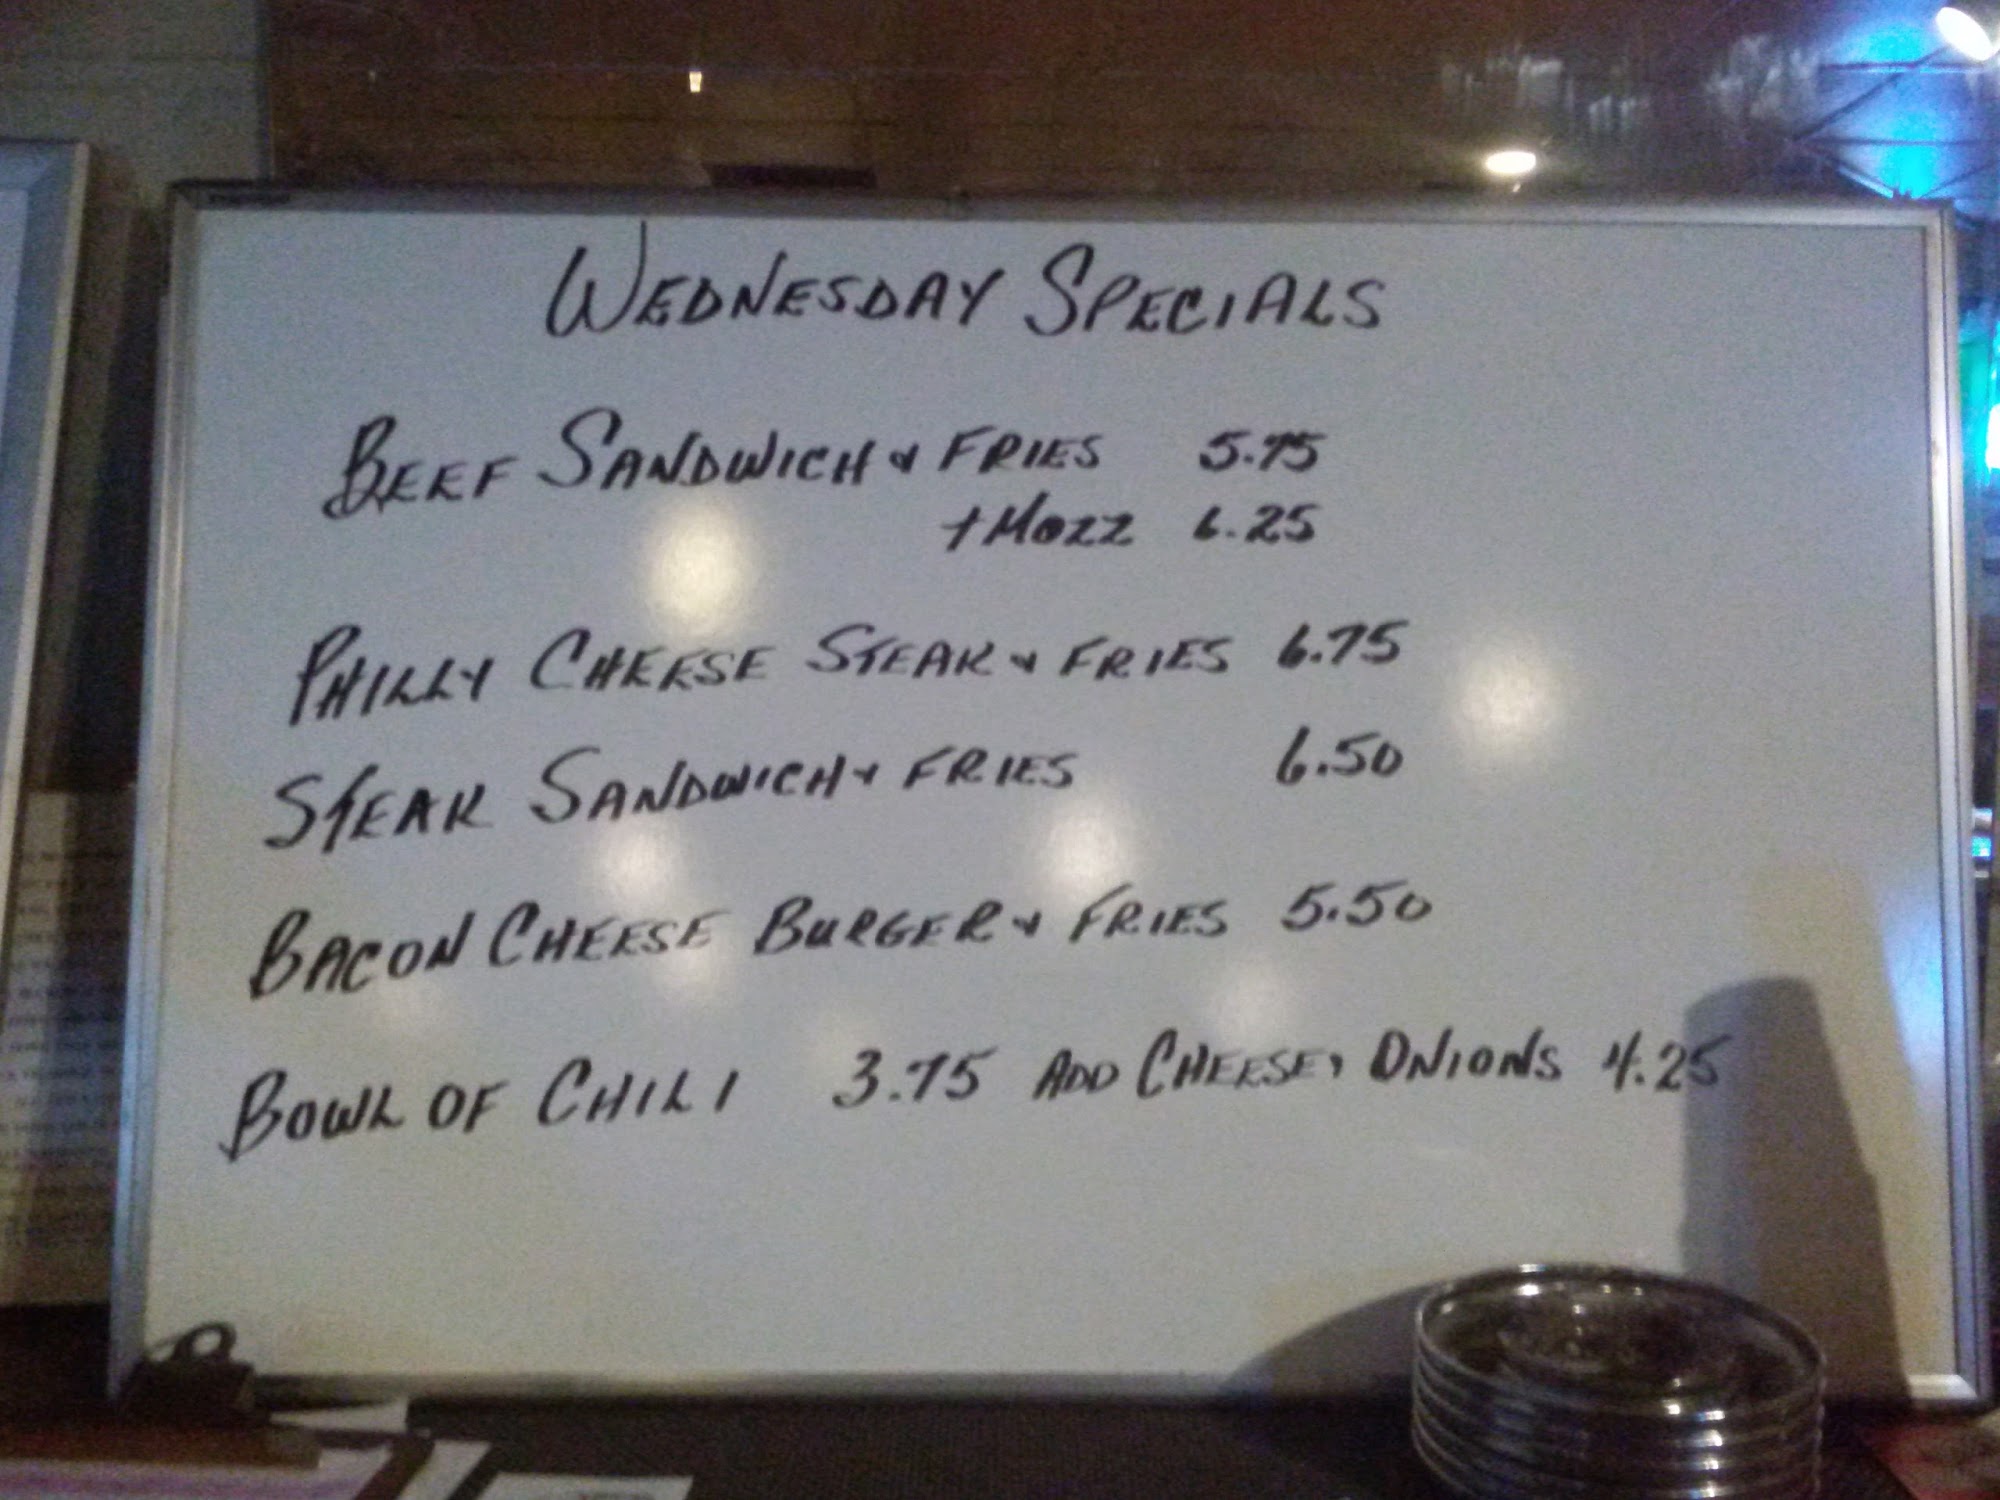 WEDNESDAY SPECIALS
BEEF SANDWICH & FRIES 5.75
+ MOZZ 6.25
PHILLY CHEESE STEAK & FRIES 6.75
STEAK SANDWICH & FRIES 6.50
BACON CHEESE BURGER & FRIES 5.50
BOWL OF CHILI 3.75 ADD CHEESE, ONIONS 4.25